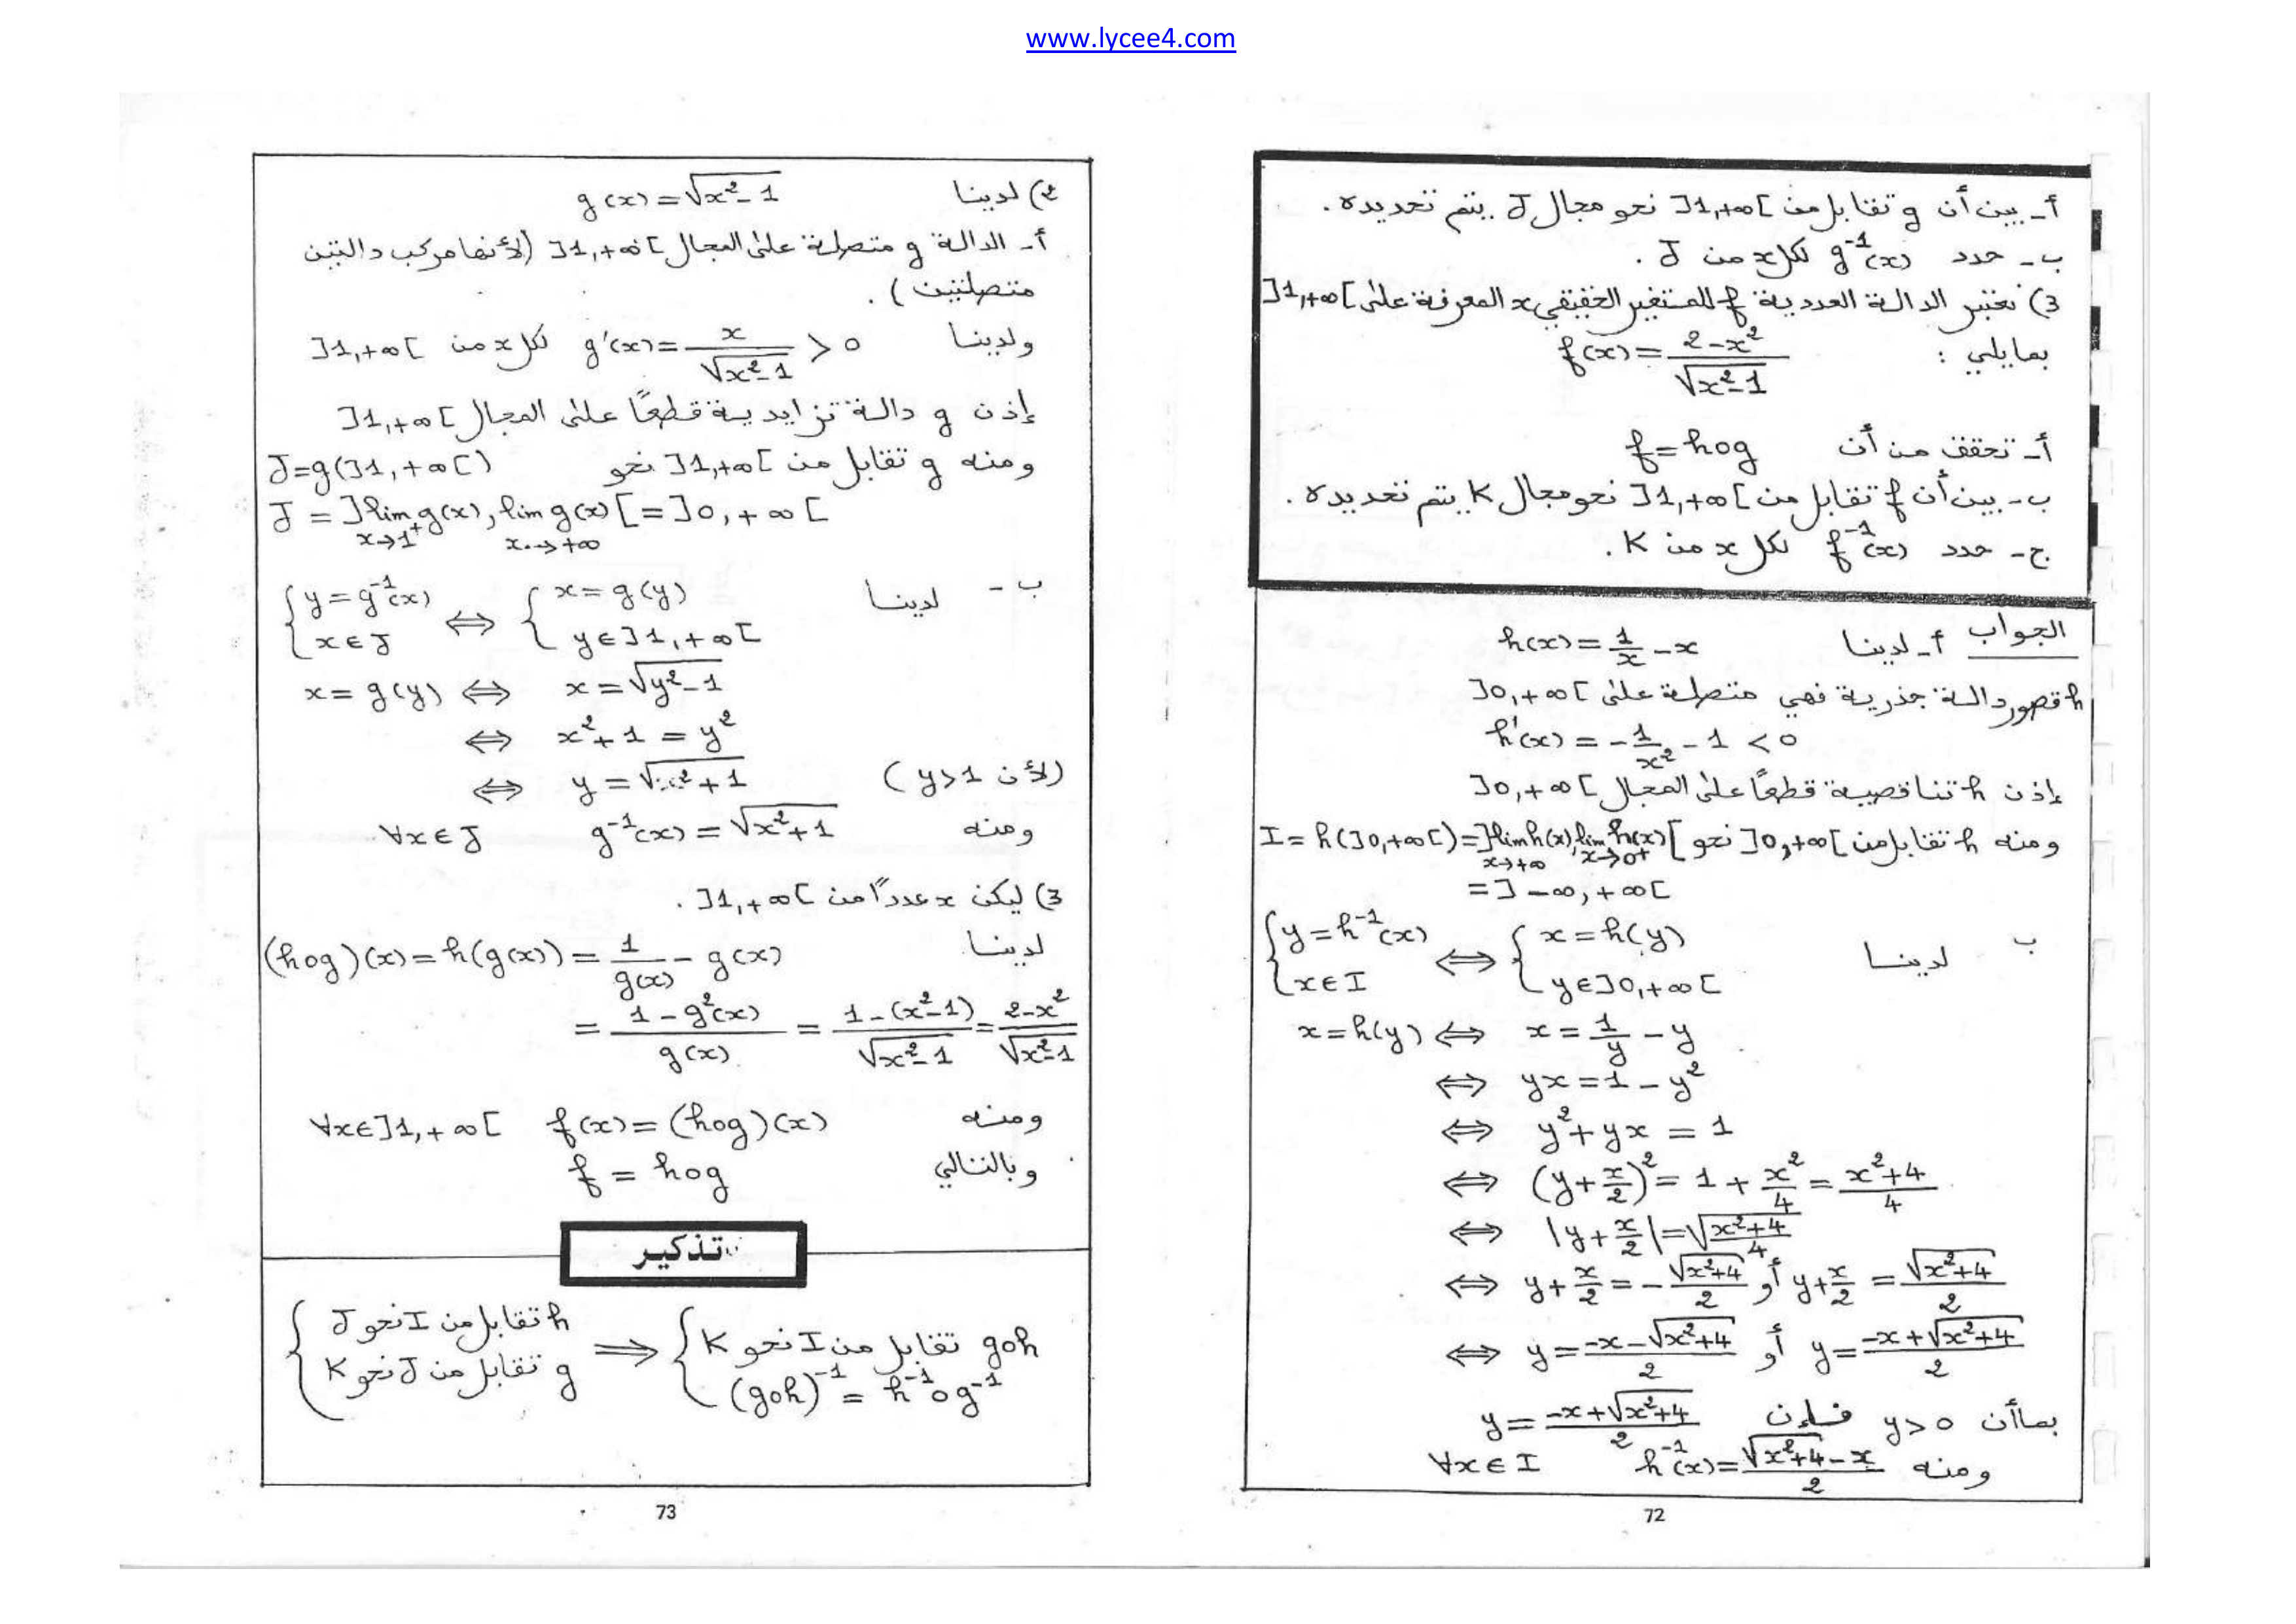 www.lycee4.com
أ ـ بين أن g تقابل من ]1,+∞[ نحو مجال J يتم تحديده.
ب ـ حدد g⁻¹(x) لكل x من J.
3) نعتبر الدالة العددية f للمتغير الحقيقي x المعرفة على ]1,+∞[
بمايلي : f(x) = (2-x²)/√(x²-1)
أ ـ تحقق من أن f = hog
ب ـ بين أن f تقابل من ]1,+∞[ نحو مجال K يتم تحديده.
ج ـ حدد f⁻¹(x) لكل x من K.
الجواب أ ـ لدينا h(x) = 1/x - x
h قصور دالة جذرية فهي متصلة على ]0,+∞[
h'(x) = -1/x² - 1 < 0
إذن h تناقصية قطعاً على المجال ]0,+∞[
ومنه h تقابل من ]0,+∞[ نحو I = h(]0,+∞[) = ]lim h(x), lim h(x)[
x→+∞ x→0⁺
= ]-∞,+∞[
ب لدينا { y = h⁻¹(x) ⇔ { x = h(y)
x∈I y∈]0,+∞[
x = h(y) ⇔ x = 1/y - y
⇔ yx = 1 - y²
⇔ y² + yx = 1
⇔ (y + x/2)² = 1 + x²/4 = (x²+4)/4
⇔ |y + x/2| = √((x²+4)/4)
⇔ y + x/2 = -√(x²+4)/2 أو y + x/2 = √(x²+4)/2
⇔ y = (-x-√(x²+4))/2 أو y = (-x+√(x²+4))/2
بما أن y > 0 فإن y = (-x+√(x²+4))/2
ومنه h⁻¹(x) = (√(x²+4) - x)/2 ∀x∈I
72
2) لدينا g(x) = √(x²-1)
أ ـ الدالة g متصلة على المجال ]1,+∞[ (لأنها مركب دالتين
متصلتين).
ولدينا g'(x) = x/√(x²-1) > 0 لكل x من ]1,+∞[
إذن g دالة تزايدية قطعاً على المجال ]1,+∞[
ومنه g تقابل من ]1,+∞[ نحو J = g(]1,+∞[)
J = ]lim g(x), lim g(x)[ = ]0,+∞[
x→1⁺ x→+∞
ب ـ لدينا { y = g⁻¹(x) ⇔ { x = g(y)
x∈J y∈]1,+∞[
x = g(y) ⇔ x = √(y²-1)
⇔ x² + 1 = y²
⇔ y = √(x²+1) (لأن y>1)
ومنه g⁻¹(x) = √(x²+1) ∀x∈J
3) ليكن x عدداً من ]1,+∞[.
لدينا (hog)(x) = h(g(x)) = 1/g(x) - g(x)
= (1 - g²(x))/g(x) = (1-(x²-1))/√(x²-1) = (2-x²)/√(x²-1)
ومنه f(x) = (hog)(x) ∀x∈]1,+∞[
وبالتالي f = hog
تذكير
{ h تقابل من I نحو J ⇒ { goh تقابل من I نحو K
g تقابل من J نحو K (goh)⁻¹ = h⁻¹og⁻¹
73